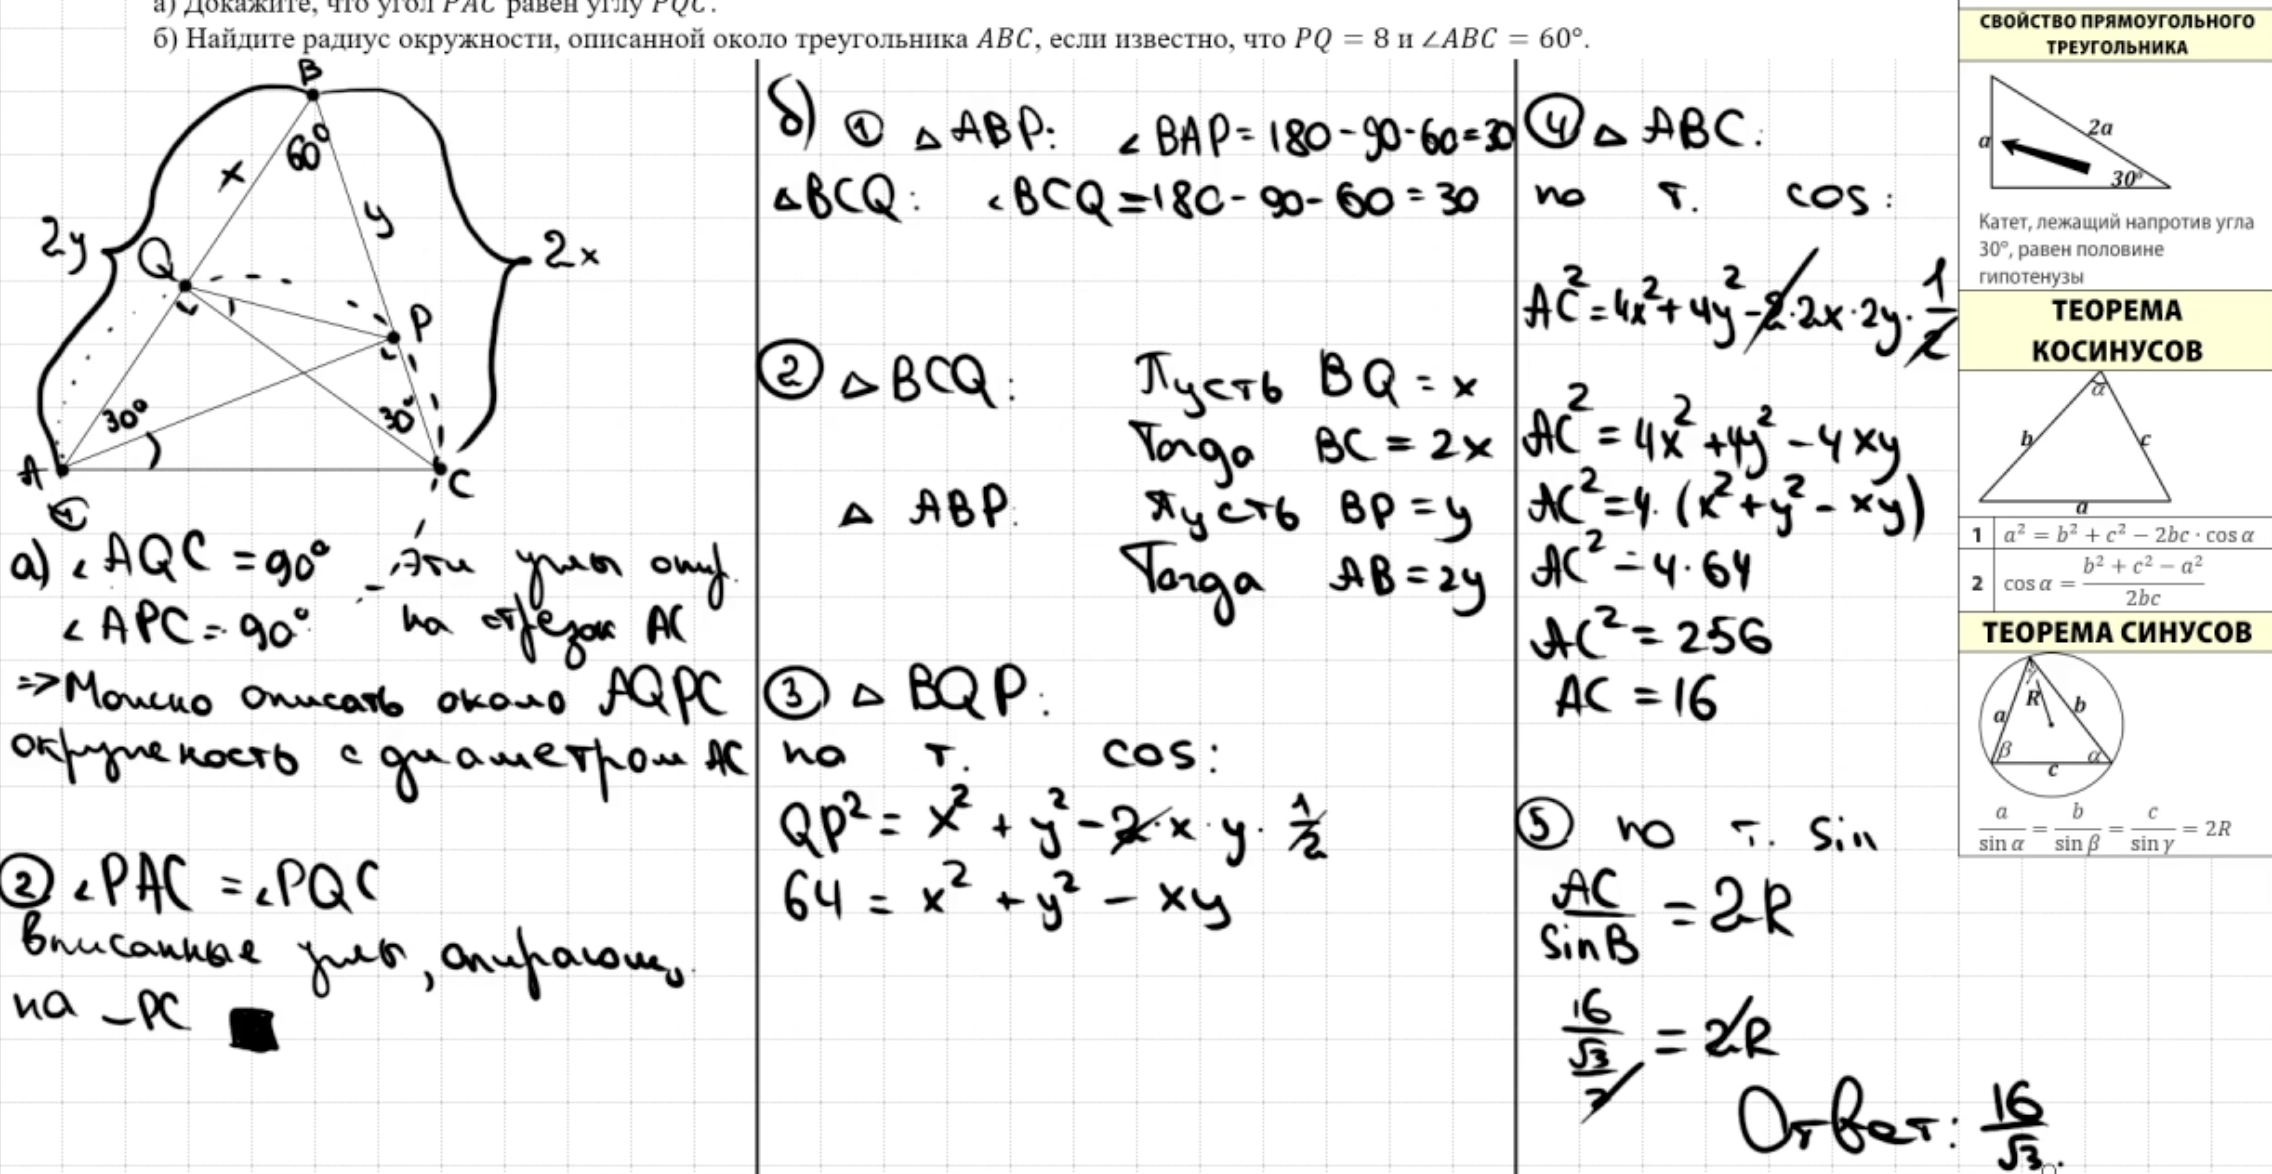 а) Докажите, что угол PAC равен углу PQC.
б) Найдите радиус окружности, описанной около треугольника ABC, если известно, что PQ = 8 и ∠ABC = 60°.
B
60°
x
y
2y
Q
2x
P
30°
30°
A
C
①
а) ∠AQC = 90° - Эти углы опир.
∠APC = 90° на отрезок AC
=> Можно описать около AQPC
окружность с диаметром AC
② ∠PAC = ∠PQC
вписанные углы, опирающ.
на ⌣PC
б) ① △ABP: ∠BAP = 180 - 90 - 60 = 30
△BCQ: ∠BCQ = 180 - 90 - 60 = 30
② △BCQ: Пусть BQ = x
Тогда BC = 2x
△ ABP: Пусть BP = y
Тогда AB = 2y
③ △ BQP:
по т. cos:
QP² = x² + y² - 2·x·y·1/2
64 = x² + y² - xy
④ △ ABC:
по т. cos:
AC² = 4x² + 4y² - 2·2x·2y·1/2
AC² = 4x² + 4y² - 4xy
AC² = 4·(x² + y² - xy)
AC² = 4·64
AC² = 256
AC = 16
⑤ по т. sin
AC/sinB = 2R
16/(√3/2) = 2R
Ответ: 16/√3.
СВОЙСТВО ПРЯМОУГОЛЬНОГО
ТРЕУГОЛЬНИКА
a
2a
30°
Катет, лежащий напротив угла
30°, равен половине
гипотенузы
ТЕОРЕМА
КОСИНУСОВ
α
b
c
a
1 a² = b² + c² − 2bc · cos α
2 cos α = (b² + c² − a²)/2bc
ТЕОРЕМА СИНУСОВ
γ
R
a
b
β
α
c
a/sin α = b/sin β = c/sin γ = 2R